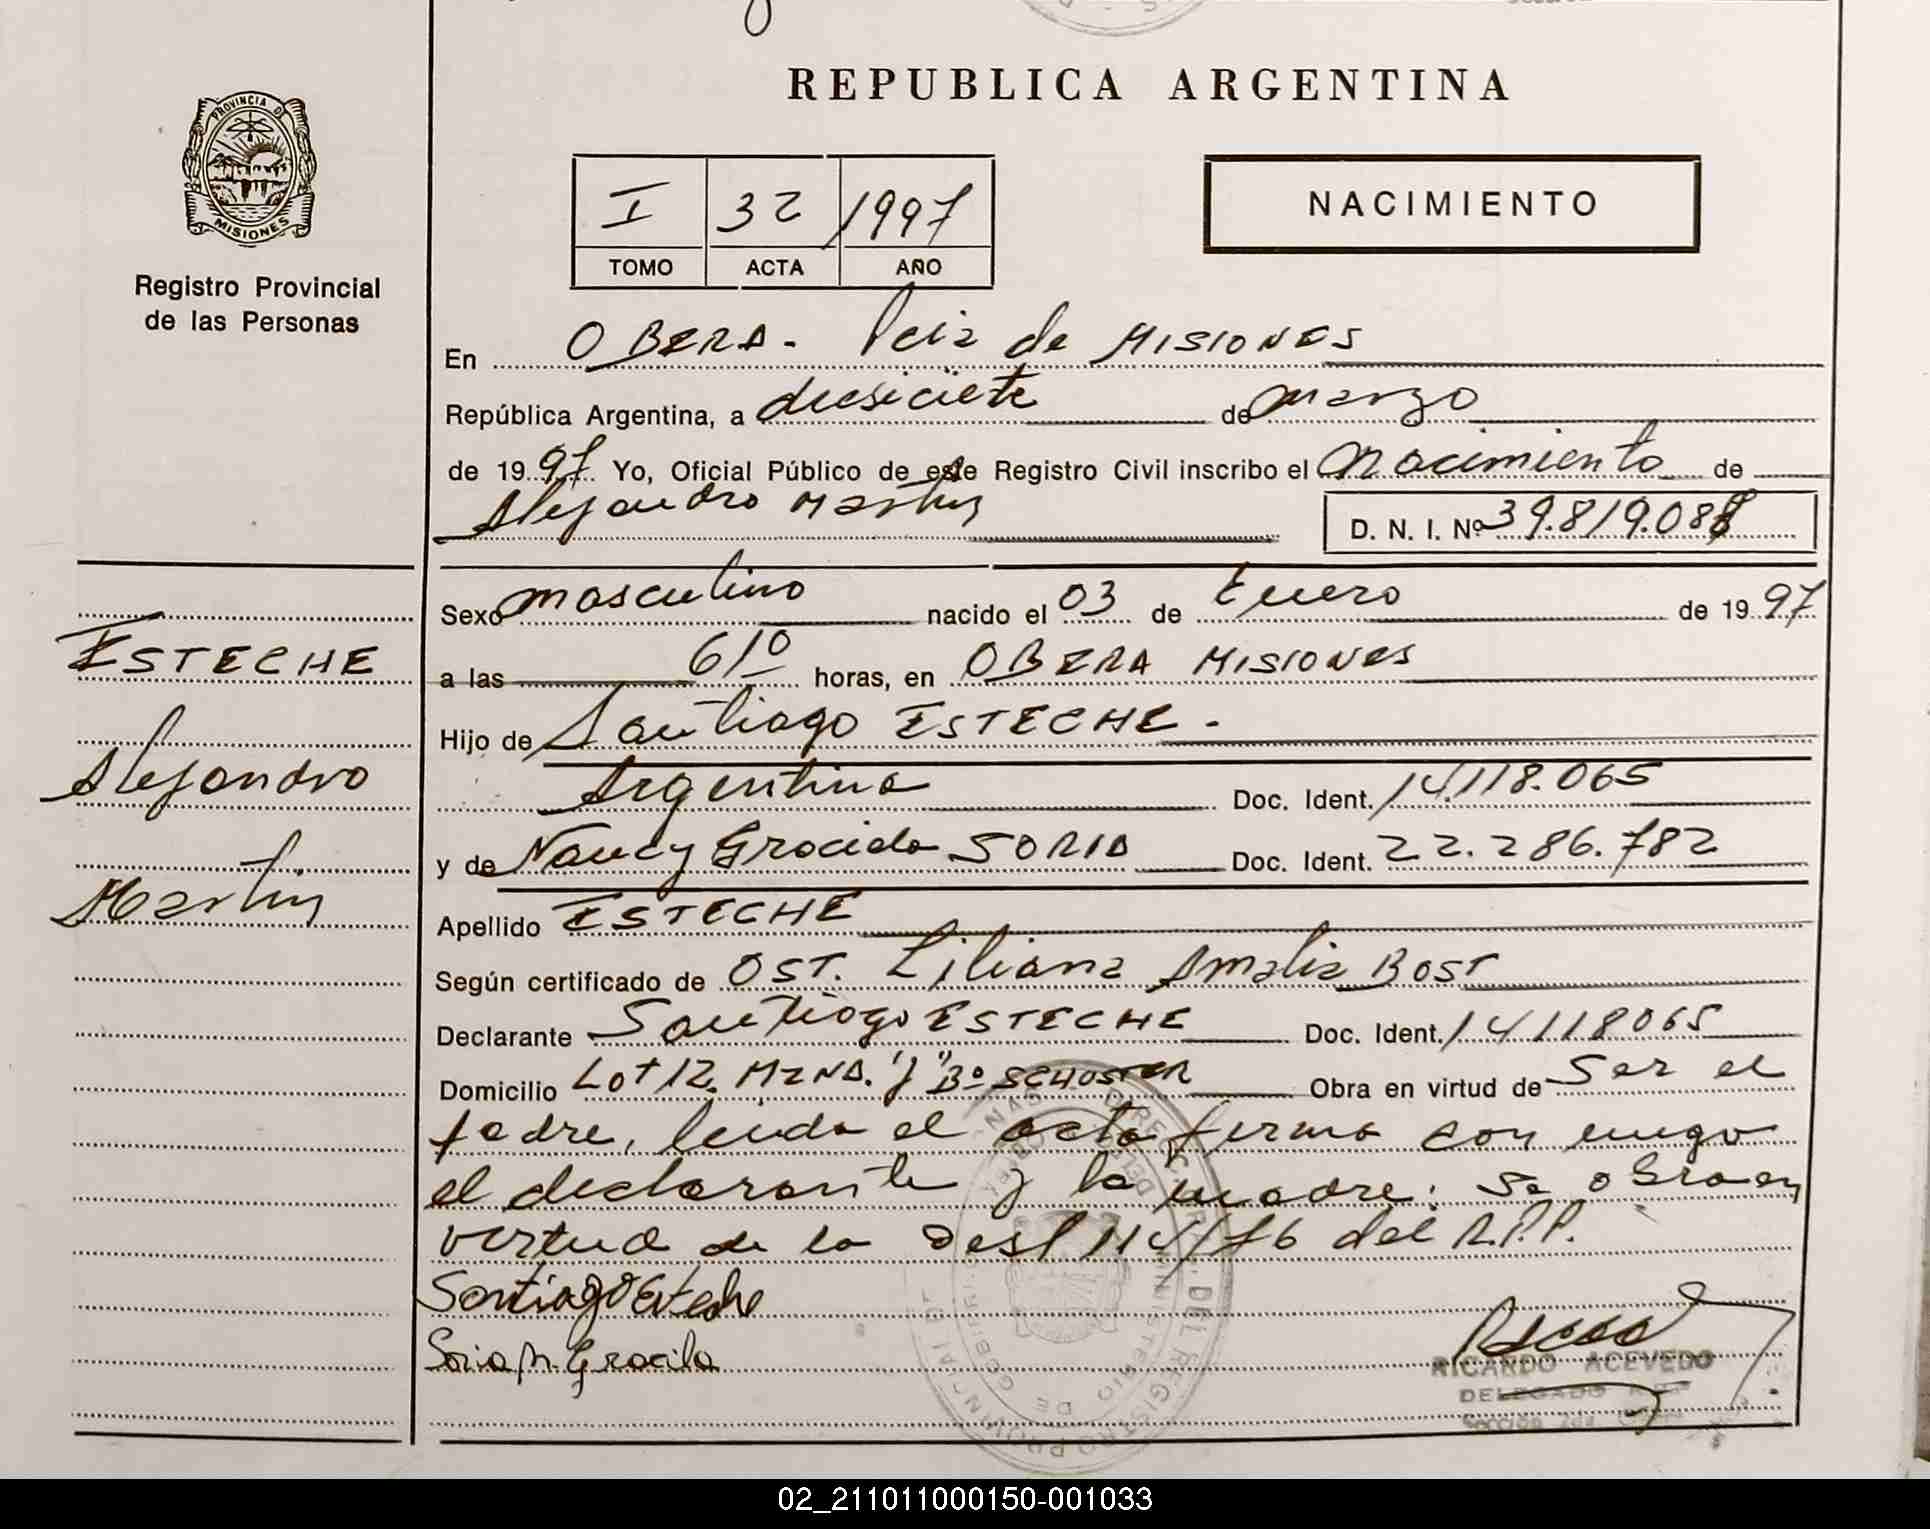 REPUBLICA ARGENTINA
PROVINCIA DE
MISIONES
Registro Provincial
de las Personas
I 32 1997
TOMO ACTA AÑO
NACIMIENTO
En OBERA. Pcia de MISIONES
República Argentina, a diesiciete de marzo
de 1997 Yo, Oficial Público de este Registro Civil inscribo el Nacimiento de
Alejandro Martin
D. N. I. Nº 39.819.088
Sexo masculino nacido el 03 de Enero de 1997
a las 610 horas, en OBERA MISIONES
Hijo de Santiago ESTECHE.
Argentina Doc. Ident. 14.118.065
y de Nancy Graciela SORIA Doc. Ident. 22.286.782
Apellido ESTECHE
Según certificado de OST. Liliana Amalia BOST
Declarante Santiago ESTECHE Doc. Ident. 14118065
Domicilio Lot 12. MZNA. "J" Bº SCHUSTER Obra en virtud de Ser el
padre, leida el acta firma con migo
el declarante y la madre. Se obra en
virtud de la 114/76 del R.P.P.
Santiago Esteche
Soria N. Graciela
RICARDO ACEVEDO
DELEGADO
ESTECHE
Alejandro
Martin
02_211011000150-001033